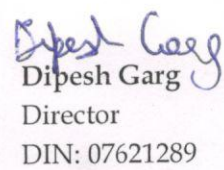 Dipesh Garg
Dipesh Garg
Director
DIN: 07621289